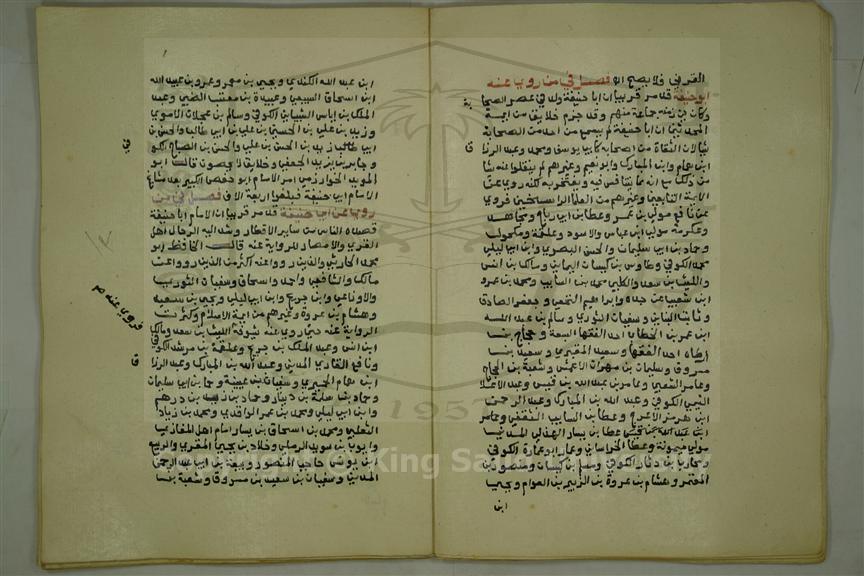 القربى فلا يصح الا فصل في من روى عنه
ابو حنيفة قد مر قريبا ان ابا حنيفة ولد في عصر الصحابة
وكان في زمنه جماعة منهم وقد جزم خلايق من ايمة
المحدثين ان ابا حنيفة لم يسمع من احد من الصحابة
الثقاة من اصحابه كابي يوسف ومحمد وعبد الرزاق
ابن همام وابن المبارك وابو نعيم وغيرهم لم ينقلوا عنه شيا
من ذلك مع انه مما يتنافس فيه ويفتخر به لكنه روى عن
الايمة التابعين وغيرهم من العلما الراسخين فروى
عن نافع مولى بن عمر وعطا بن ابي رباح ومجاهد
وعكرمة مولى ابن عباس والاسود وعلقمة ومكحول
وحماد بن ابي سليمان والحسن البصري وابن ابي ليلى
محمد الكوفي وطاوس بن كيسان اليماني ومالك بن انس
والليث بن سعد والكلبي محمد بن السايب ومحمد بن عمرو
ابن شعيب عن جده وابراهيم النخعي وجعفر الصادق
وثابت البناني وسفيان الثوري وسالم بن عبد الله
ابن عمر بن الخطاب احد الفقها السبعة وحجاج بن
ارطاه احد الفقها وسعيد المقبري وسعيد بن
مسروق وسليمان بن مهران الاعمش وشعبة بن الحجاج
وعامر الشعبي وعامر بن عبد الله بن قيس وعبد الاعلا
التيمي الكوفي وعبد الله بن المبارك وعبد الرحمن
ابن هرمز الاعرج وعطا بن السايب الثقفي وعامر
ابن عبد الله بن قيس وعطا بن يسار الهذلي المدني
مولى ميمونة وعطا الخراساني وعمار ابو عمارة الكوفي
ومحارب بن دثار الكوفي ومسلم بن كيسان ومنصور بن
المعتمر وهشام بن عروة بن الزبير بن العوام ويحيى
ابن
ابن عبد الله الكندي ويحيى بن معمر وعمرو بن عبيد الله
ابن اسحاق السبيعي وعبيدة بن معتب الضبي وعبد
الملك بن اياس الشيباني الكوفي وسالم بن عجلان الاموي
وزيد بن علي بن الحسين بن علي بن ابي طالب والحسن بن
ابي طالب زيد بن الحسن بن علي والحسن بن الصباح الكو
وجابر بن يزيد الجعفي وخلايق لا يحصون قال ابو
المويد الخوارزمي امر الامام ابي حفص الكبير بعد مشايخ
الامام ابي حنيفة فبلغوا اربعة الاف فصل في من
روى عن ابي حنيفة قد مر قريبا ان الامام ابا حنيفة
قصداه الناس من ساير الاقطار وشد اليه الرجال اهل
القرى والامصار للرواية عنه قال الحافظ ابو
محمد الحارثي والذين رووا عنه اكثر من الذين رووا عن
مالك والشافعي واحمد واسحاق وسفيان الثوري
والاوزاعي وابن جريج وابن ابي ليلى ويحيى بن سعيد
وهشام بن عروة وغيرهم من ايمة الاسلام وكثرت
الرواية عنه حتى روى عنه شيوخه الليث بن سعد ومالك
ابن انس وعبد الملك بن جريج وعلقمة بن مرثد الكو
ونافع القاري المدني وعبد الله بن المبارك وعبد الرزاق
ابن همام الحميري وسفيان بن عيينة وحماد بن ابي سليمان
وحماد بن سلمة بن دينار وحماد بن زيد بن درهم
وابن ابي ليلى ومحمد بن عمر الواقدي ومحمد بن زياد
الثعلبي ومحمد بن اسحاق بن يسار امام اهل المغازي
وايوب بن سويد الرملي وخلاد بن يحيى المقري والربيع
ابن يونس حاجب المنصور وربيعة بن ابي عبد الرحمن
المدني وسفيان بن سعيد بن مسروق وشعبة بن
فروى عنه صح
1957
King Saud University